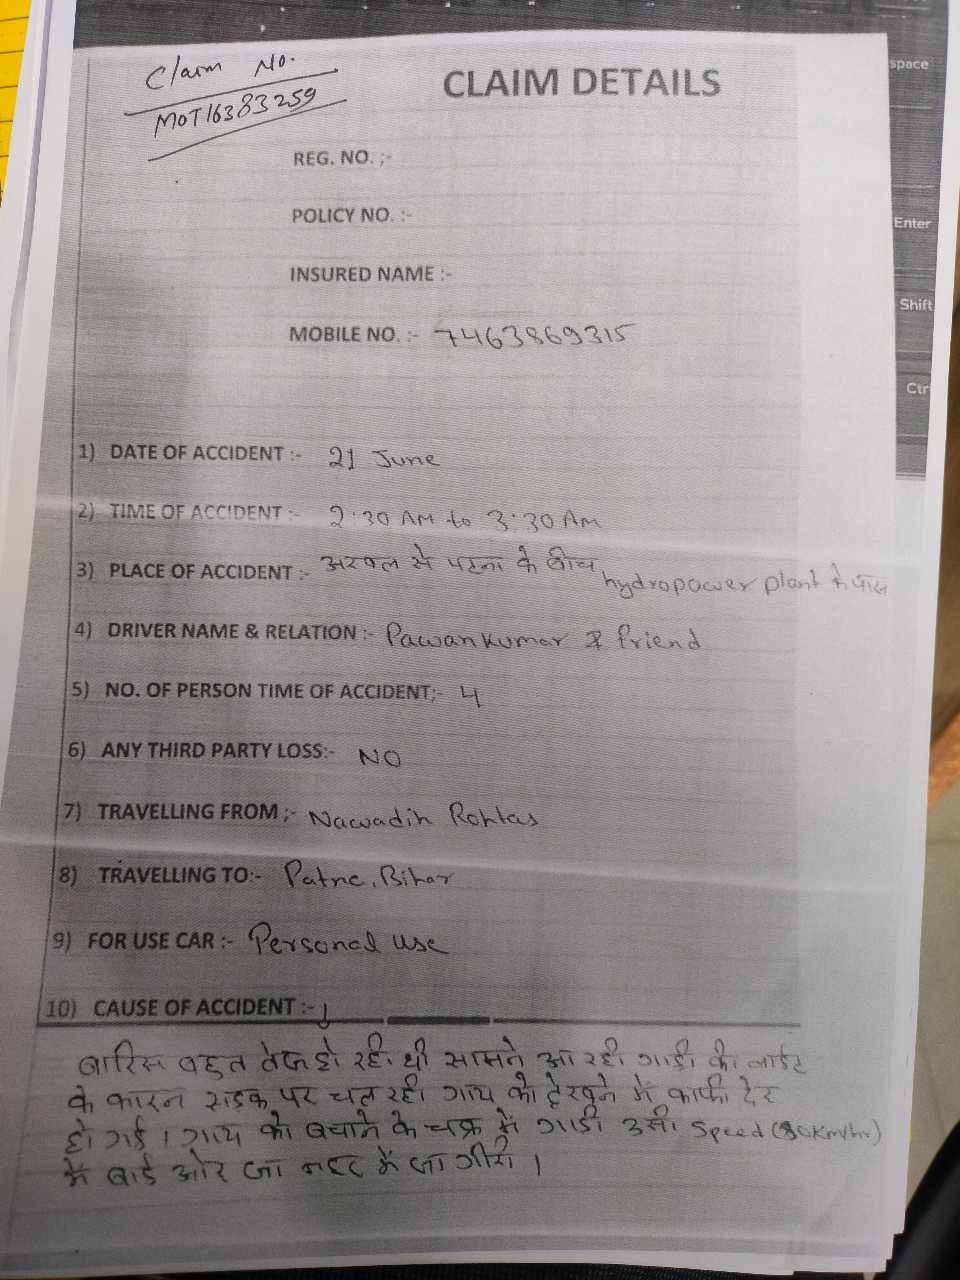 Claim No.
MOT16383259
CLAIM DETAILS
REG. NO. ;-
POLICY NO. :-
INSURED NAME :-
MOBILE NO. :- 7463869315
1) DATE OF ACCIDENT :- 21 June
2) TIME OF ACCIDENT :- 2:30 AM to 3:30 AM
3) PLACE OF ACCIDENT :- अरवल से पटना के बीच hydropower plant के पास
4) DRIVER NAME & RELATION :- Pawan Kumar & friend
5) NO. OF PERSON TIME OF ACCIDENT;- 4
6) ANY THIRD PARTY LOSS:- NO
7) TRAVELLING FROM ;- Nawadih Rohtas
8) TRAVELLING TO:- Patna, Bihar
9) FOR USE CAR :- Personal use
10) CAUSE OF ACCIDENT :-
बारिस बहुत तेज हो रही थी सामने आ रही गाड़ी की लाईट
के कारन सड़क पर चल रही गाय को देखने में काफी देर
हो गई। गाय को बचाने के चक्र में गाडी उसी Speed (80km/hr)
में बाई ओर जा नहर में जा गीरी।
space
Enter
Shift
Ctr